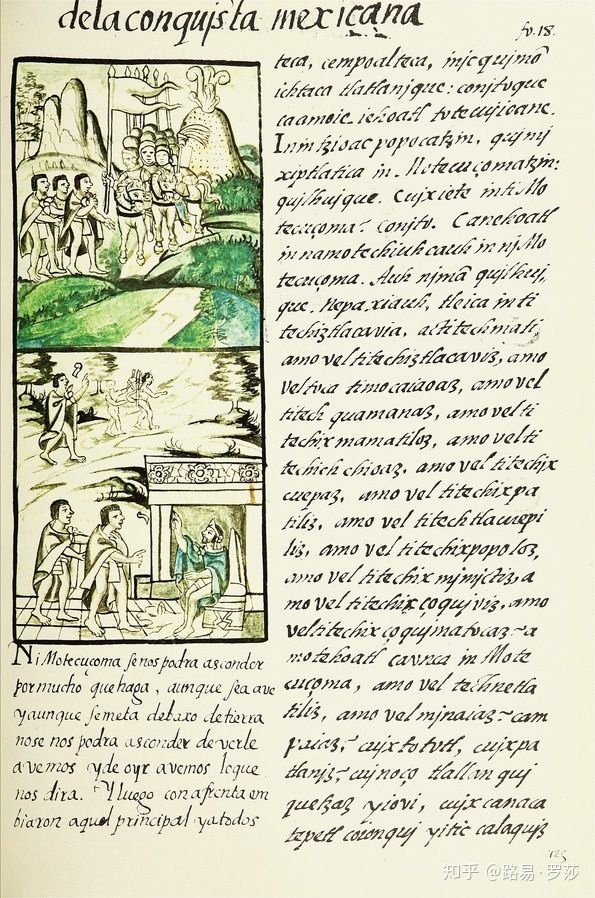 de la conquista mexicana
fo. 18.
Ni Motecuçoma se nos podra asconder
por mucho que haga, aunque sea ave
y aunque se meta debaxo de tierra
no se nos podra asconder de verle
avemos y de oyr avemos loque
nos dira. Y luego con afrenta em
biaron aquel principal y atodos
teca, cempoalteca, injc quimõ
ichtaca tlatlanique: conjtoque
ca amo ie iehoatl totecujioane.
Injn tzioac popocatzin, qujmj
xiptlatica in. Motecuçomatzin:
quilhuique. Cuix iete in ti Mo
tecuçoma? Conjto. Ca nehoatl
in namotechiuhcauh in nj Mo
tecuçoma. Auh njmã quilhuj,
que. Nepa xiauh, tleica in ti
techiztlacavia, ac titechmati,
amo vel titechiztlacaviz, amo
vel toca timocaiaoaz, amo vel
titech quamanaz, amo vel ti
techixmamatiloz, amo vel ti
techich chioaz, amo vel titechix
cuepaz, amo vel titechixpa
tiliz, amo vel titechtlacuepi
liz, amo vel titechixpopoloz,
amo vel titechix mjmjctiz, a
mo vel titechixçoquiviz, amo
vel titechixçoquimatocaz — a
motehoatl ca vnca in Mote
cuçoma, amo vel technetla
tiliz, amo vel mjnaiaz — cam
paiaz? cujx tototl, cuixpa
tlaniz? cujnoço tlallan qui
quetzaz yiovi, cujx canaca
tepetl coionqui yitic calaquiz
125
知乎 @路易·罗莎